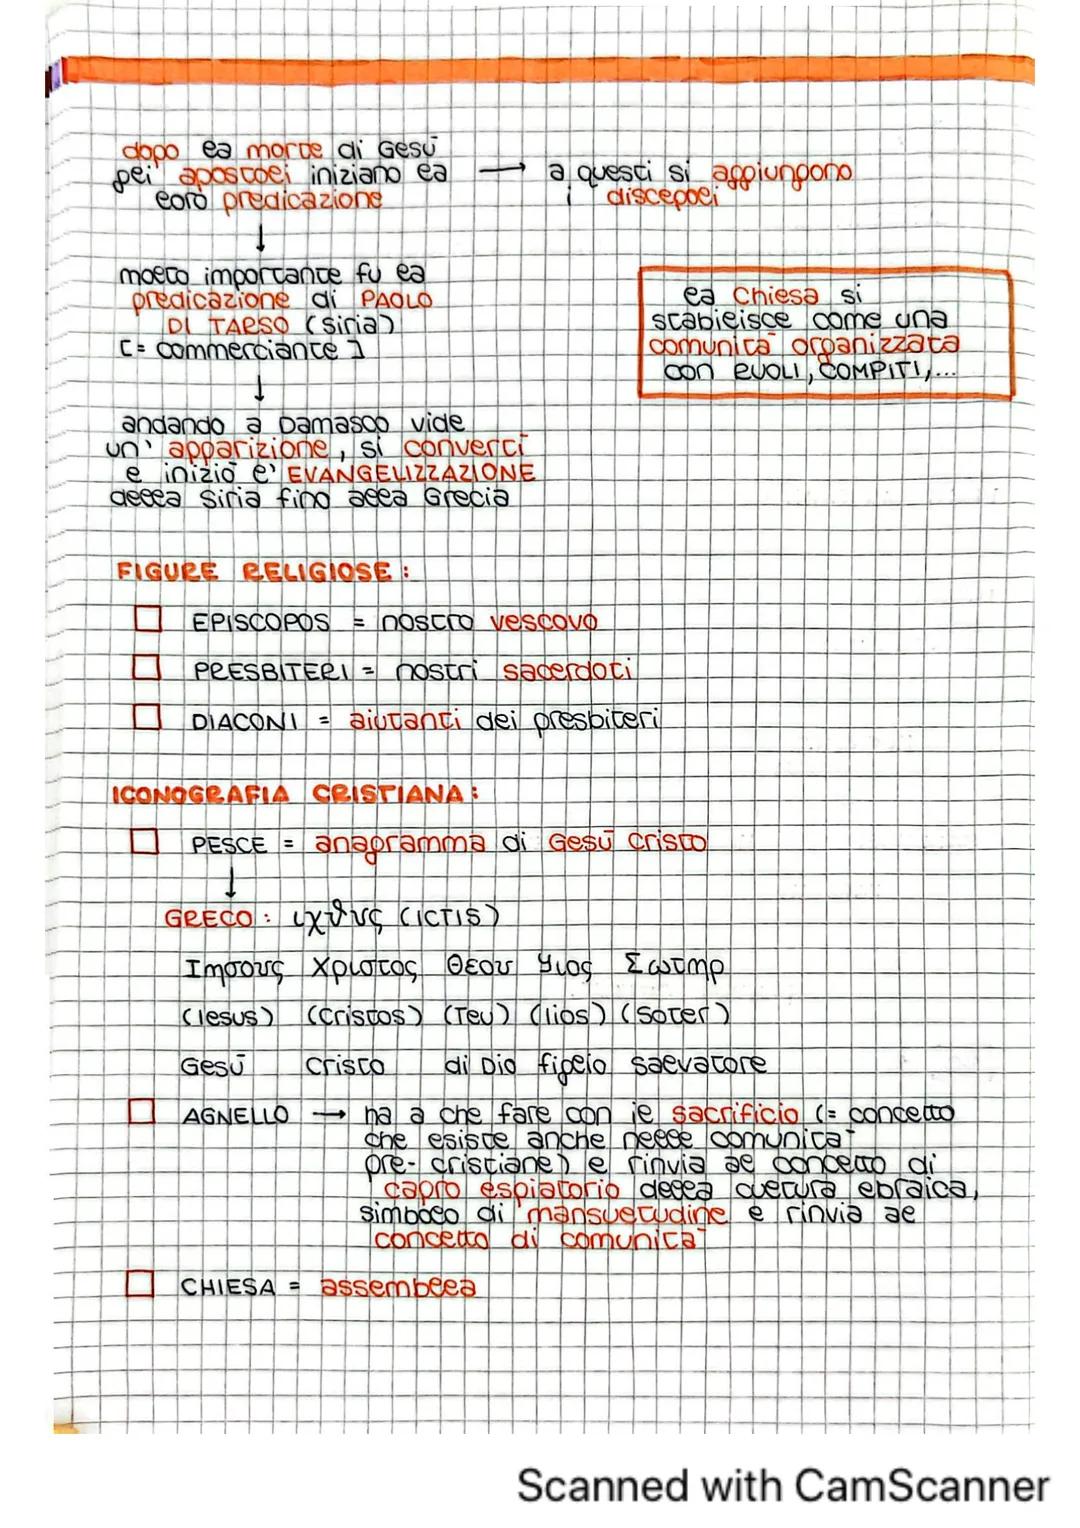 dopo la morte di Gesù
gli apostoli iniziano la → a questi si aggiungono
loro predicazione
discepoli
↓
molto importante fu la
predicazione di PAOLO
DI TARSO (siria)
[= commerciante]
↓
la Chiesa si
stabilisce come una
comunità organizzata
con RUOLI, COMPITI,...
andando a Damasco vide
un' apparizione, si convertì
e iniziò l' EVANGELIZZAZIONE
della Siria fino alla Grecia
FIGURE RELIGIOSE:
□ EPISCOPOS = nostro vescovo
□ PRESBITERI = nostri sacerdoti
□ DIACONI = aiutanti dei presbiteri
ICONOGRAFIA CRISTIANA:
□ PESCE = anagramma di Gesù Cristo
↓
GRECO: ιχθυς (ICTIS)
Ιησους Χριστος Θεου Υιος Σωτηρ
(Iesus) (Cristos) (Teu) (Iios) (Soter)
Gesù Cristo di Dio figlio salvatore
□ AGNELLO → ha a che fare con il sacrificio (= concetto
che esiste anche nelle comunità
pre-cristiane) e rinvia al concetto di
capro espiatorio della cultura ebraica,
simbolo di mansuetudine e rinvia al
concetto di comunità
□ CHIESA = assemblea
Scanned with CamScanner